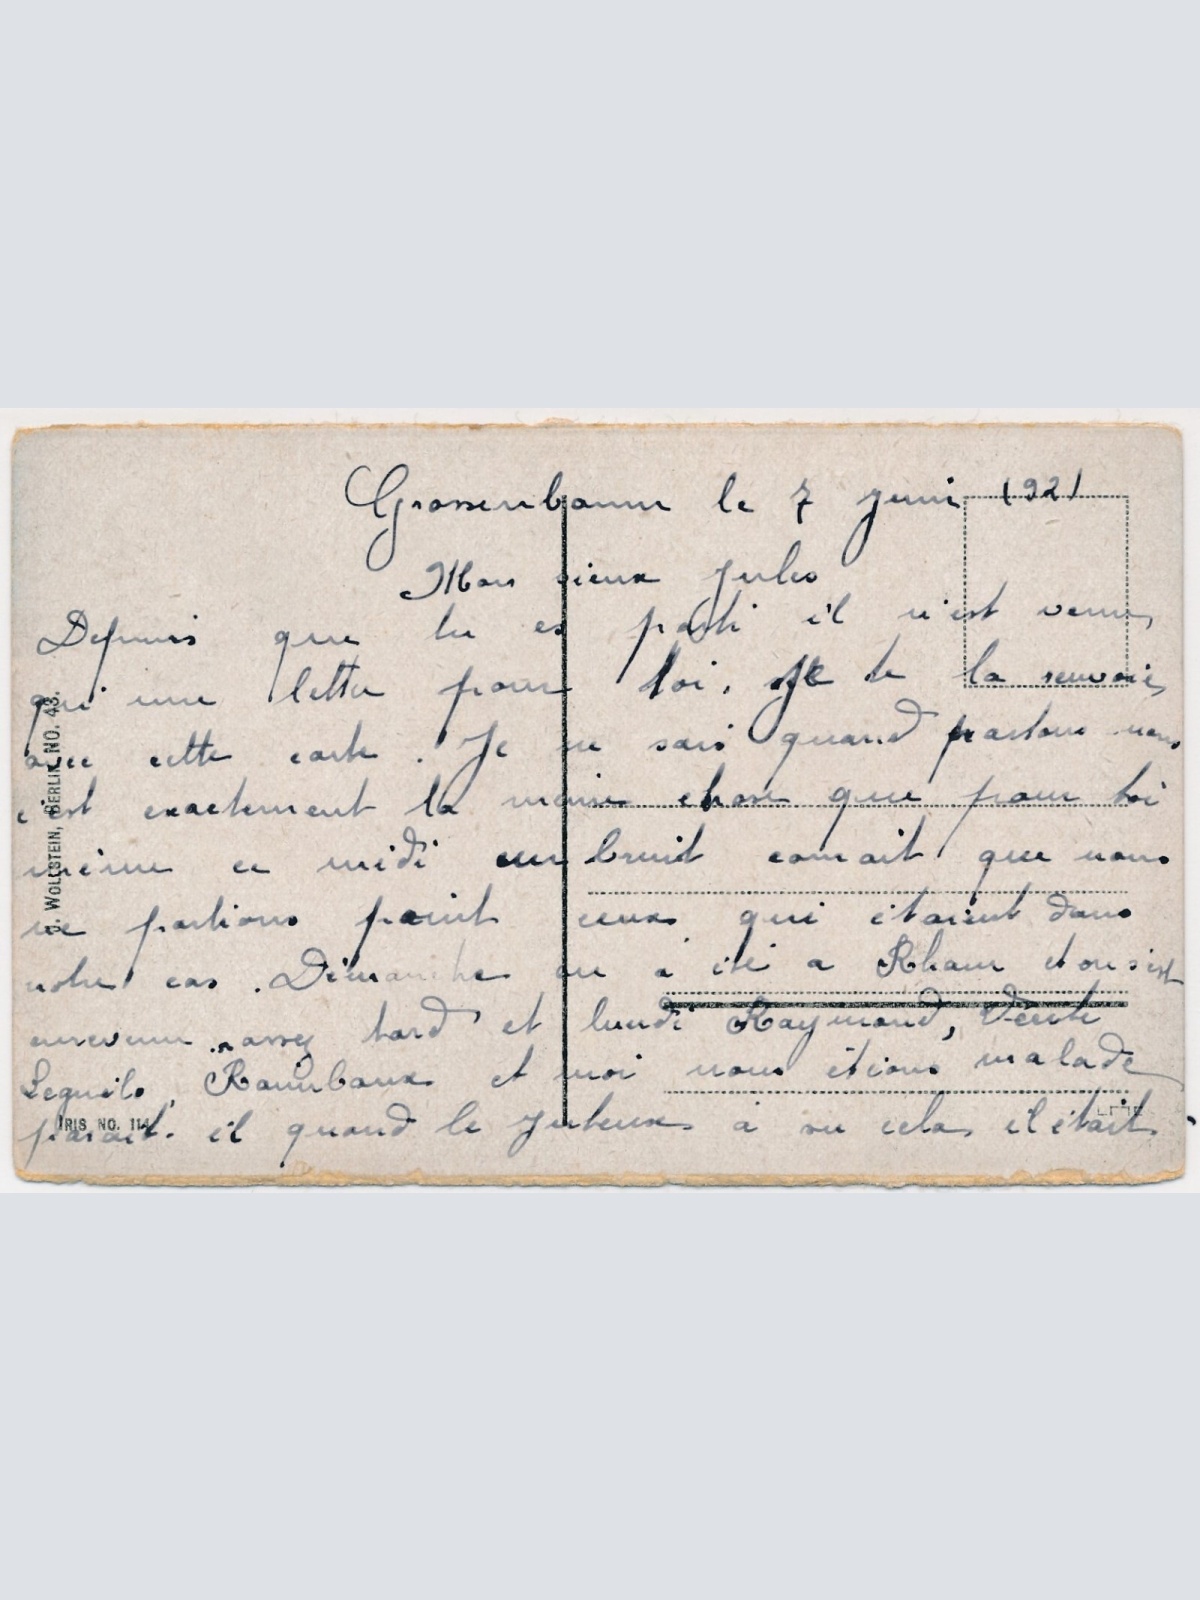 Grossenbaum le 7 Juni 1921
Mon vieux Jules
Depuis que tu es parti il n'est venus
qui une lettre pour toi. Je te la renvoie,
avec cette carte. Je ne sais quand partons nous
c'est exactement la meme chose que pour toi
même ce midi un bruit courait que nous
ne partions point ceux qui étaient dans
notre cas. Dimanche on a été a Rham et on s'est
enrevenu assez tard et lundi Raymond,
Rambaux et moi nous étions malade
parait. il quand le Juteux a vu cela, il était
G. WOLLSTEIN, BERLIN NO. 43.
IRIS NO. 114